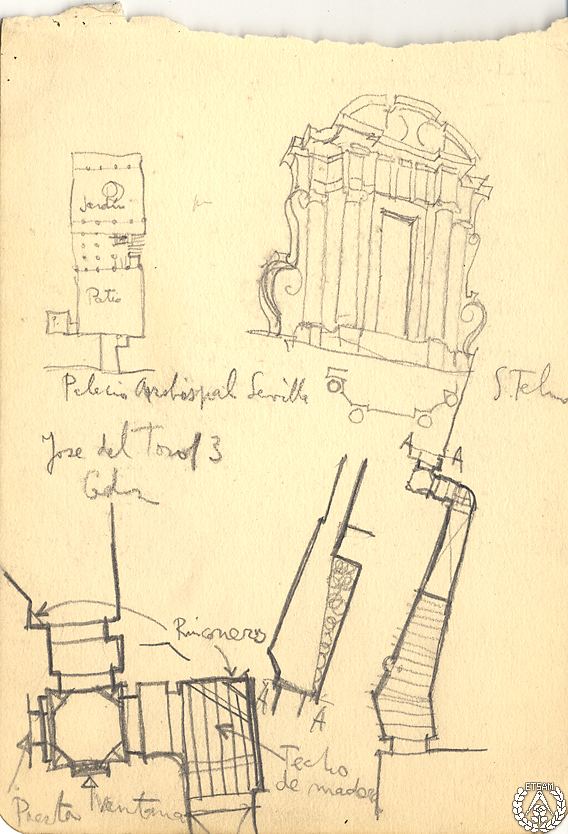 Jardin
Patio
?
Palacio Arzobispal. Sevilla
S. Telmo
Jose del Toro 3
Cadiz
A A
Rinconeros
A A
Techo
de madera
Puerta Ventana
ETSAM